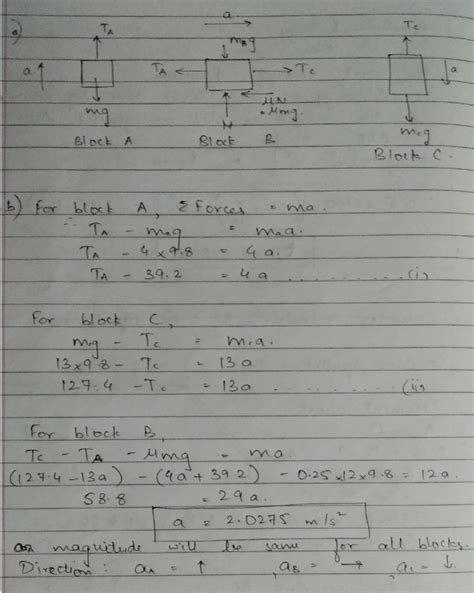 a)
a
TA
mBg
TC
a
TA
TC
a
mg
μN
= μmg.
N
mcg
Block A
Block B
Block C.
b) For block A, Σ Forces = ma.
∴ TA - mAg = mAa.
TA - 4×9.8 = 4a.
TA - 39.2 = 4a .......... (i)
For block C,
mg - Tc = mca.
13×9.8 - Tc = 13a
127.4 - Tc = 13a .......... (ii)
For block B,
Tc - TA - μmg = ma.
(127.4-13a) - (4a+39.2) - 0.25×12×9.8 = 12a.
58.8 = 29a.
a = 2.0275 m/s²
magnitude will be same for all blocks.
Direction: aA = ↑, aB = →, aC = ↓.